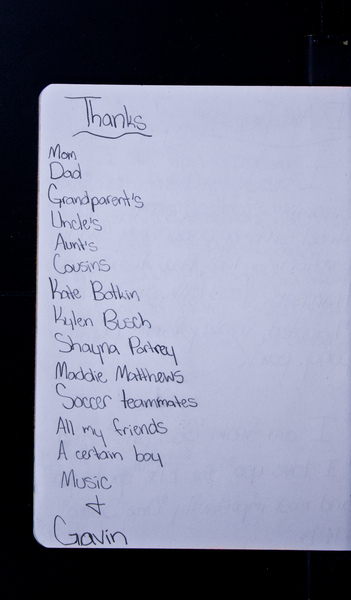 Thanks
Mom
Dad
Grandparent's
Uncle's
Aunt's
Cousins
Kate Botkin
Kylen Busch
Shayna Portrey
Maddie Matthews
Soccer teammates
All my friends
A certain boy
Music
+
Gavin